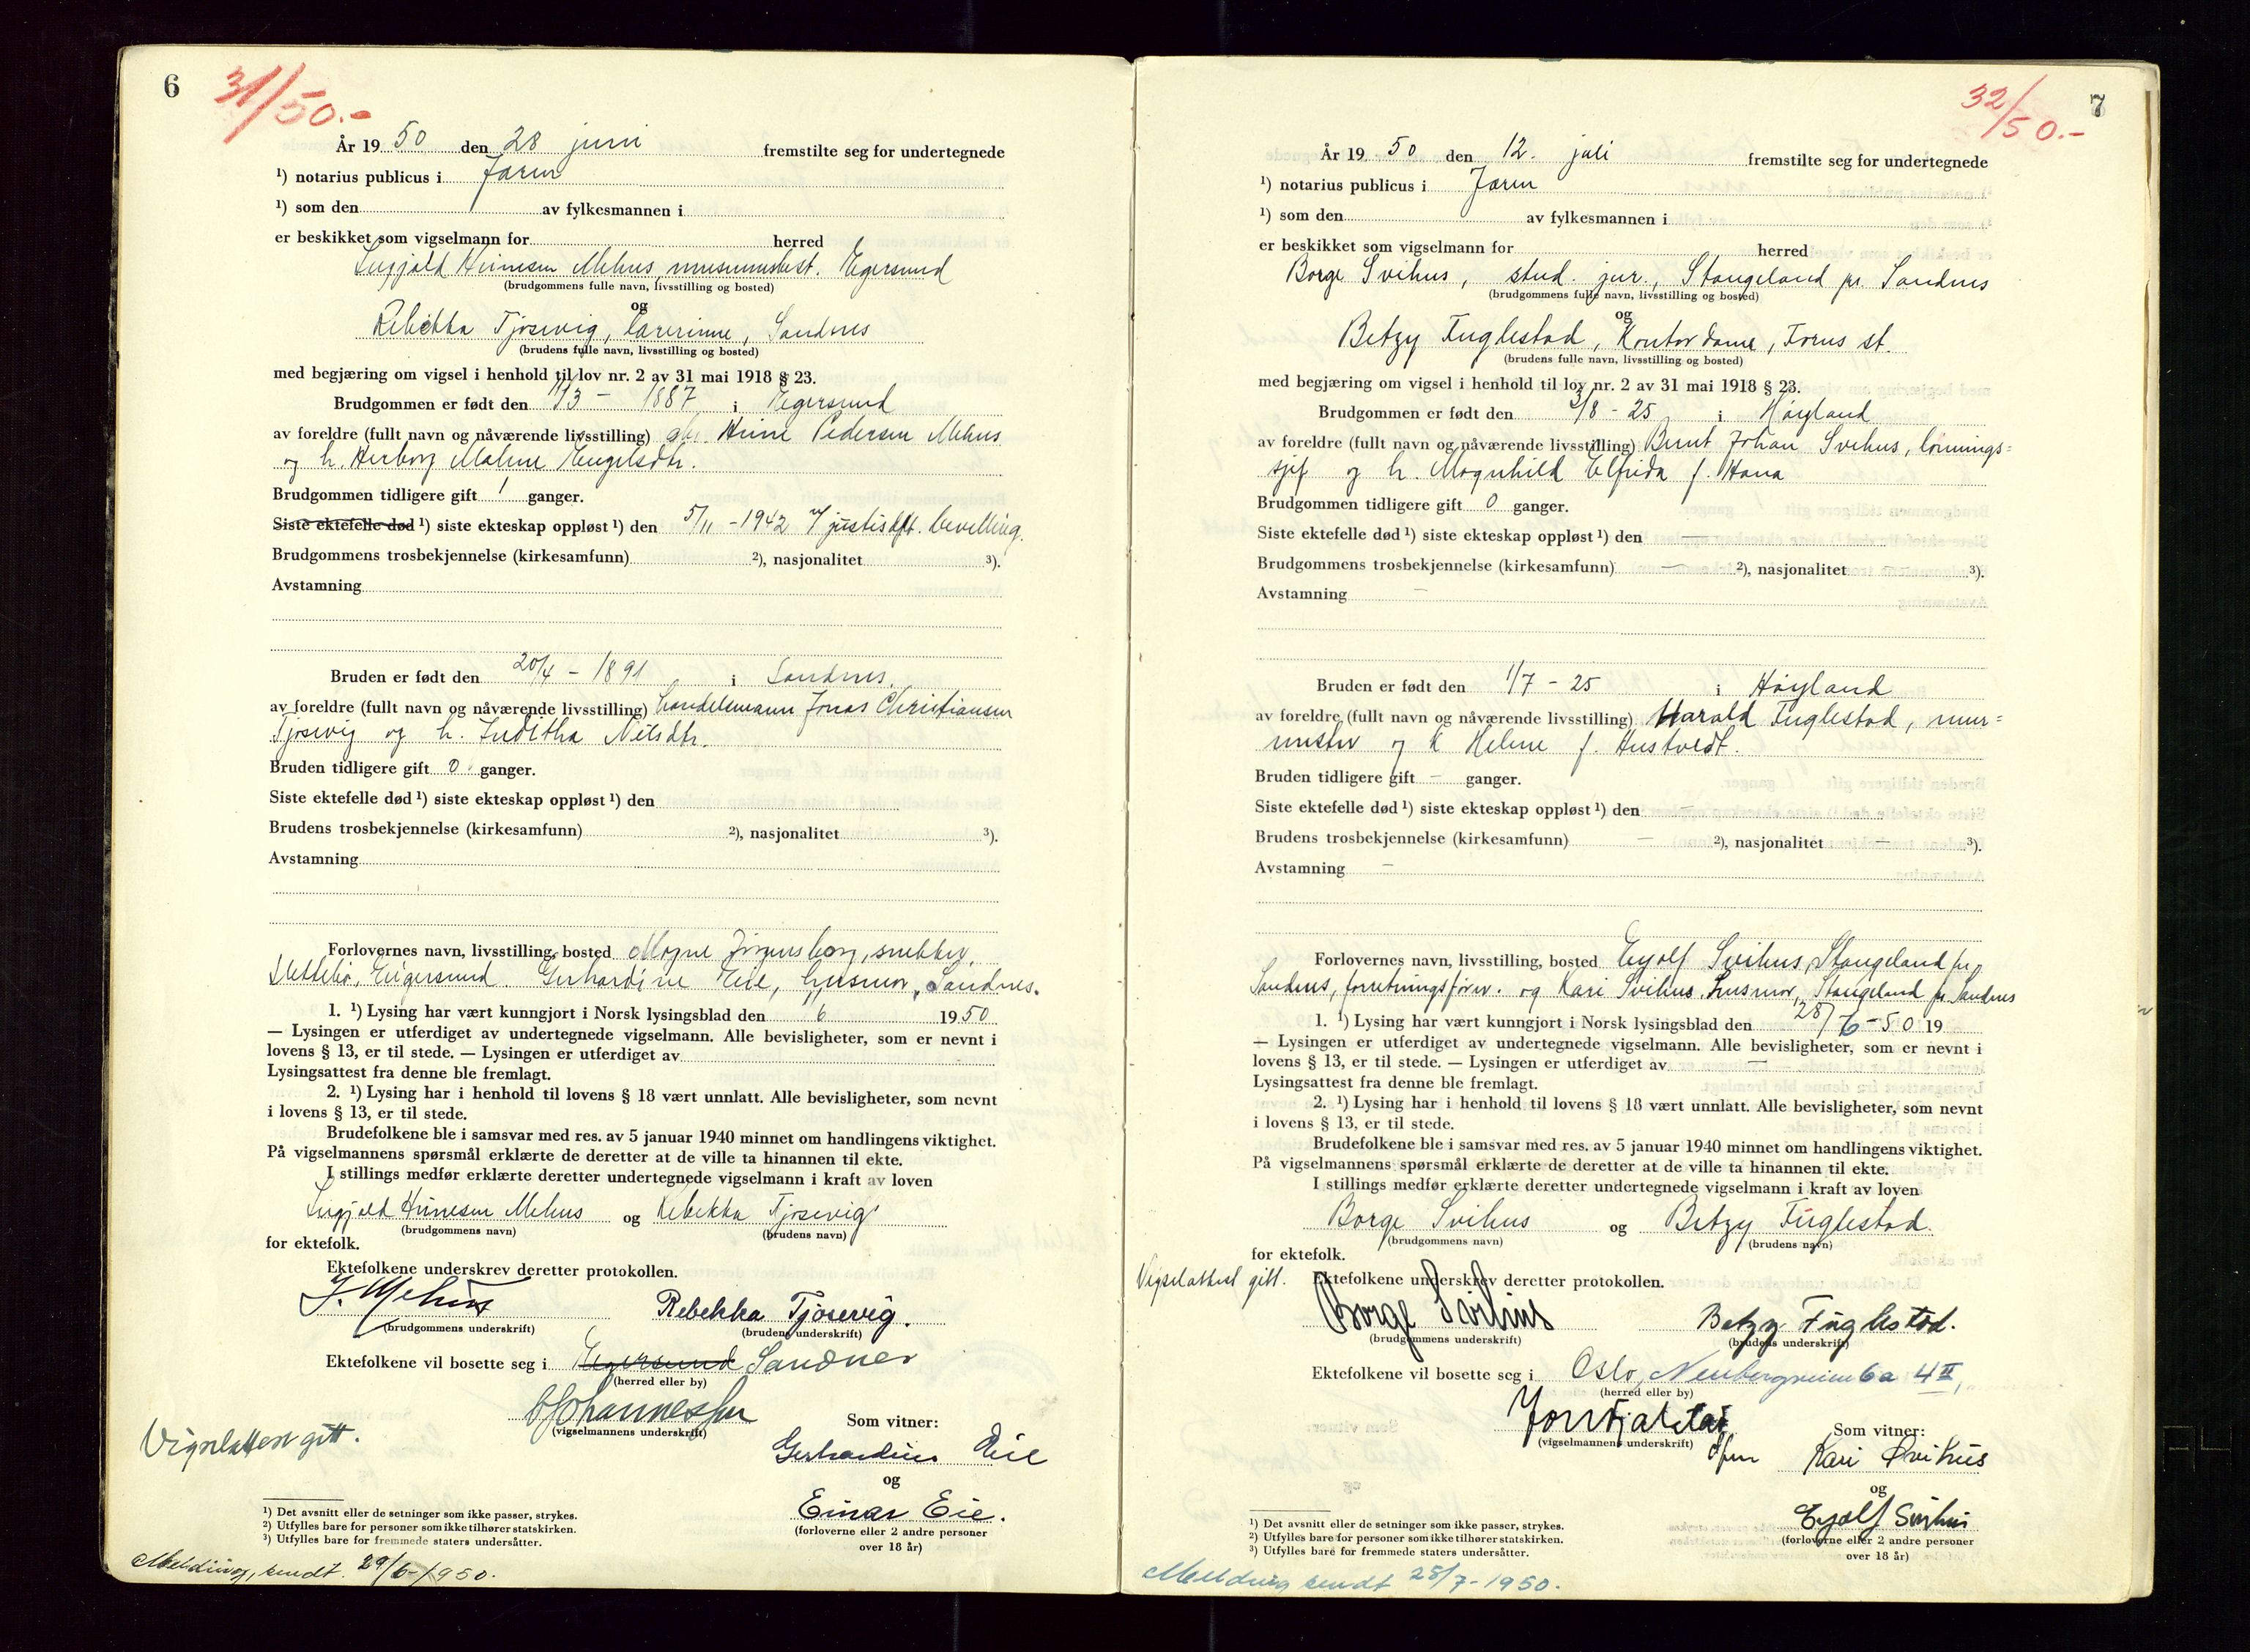 6
31/50.-
År 1950 den 28 juni fremstilte seg for undertegnede
¹) notarius publicus i Jæren
¹) som den av fylkesmannen i
er beskikket som vigselmann for herred
Ingjald Heinesen Mehus, museumsbest. Egersund
(brudgommens fulle navn, livsstilling og bosted)
og
Rebekka Tjøsevig, lærerinne, Sandnes
(brudens fulle navn, livsstilling og bosted)
med begjæring om vigsel i henhold til lov nr. 2 av 31 mai 1918 § 23.
Brudgommen er født den 1/3 - 1887 i Egersund
av foreldre (fullt navn og nåværende livsstilling) Heine Pedersen Mehus
og h. Herborg Malene Engelsdtr.
Brudgommen tidligere gift 1 ganger.
Siste ektefelle død ¹) siste ekteskap oppløst ¹) den 5/11 - 1942 v/ justisdpt. bevilling.
Brudgommens trosbekjennelse (kirkesamfunn) ²), nasjonalitet ³).
Avstamning
Bruden er født den 20/4 - 1891 i Sandnes.
av foreldre (fullt navn og nåværende livsstilling) handelsmann Jonas Christiansen
Tjøsevig og h. Inditha Nilsdtr.
Bruden tidligere gift 0 ganger.
Siste ektefelle død ¹) siste ekteskap oppløst ¹) den
Brudens trosbekjennelse (kirkesamfunn) ²), nasjonalitet ³).
Avstamning
Forlovernes navn, livsstilling, bosted Mogne Jørgensborg, snekker,
Slettebø, Eigersund. Gerhardine Eie, husmor, Sandnes.
1. ¹) Lysing har vært kunngjort i Norsk lysingsblad den 6 1950
— Lysingen er utferdiget av undertegnede vigselmann. Alle bevisligheter, som er nevnt i
lovens § 13, er til stede. — Lysingen er utferdiget av
Lysingsattest fra denne ble fremlagt.
2. ¹) Lysing har i henhold til lovens § 18 vært unnlatt. Alle bevisligheter, som nevnt
i lovens § 13, er til stede.
Brudefolkene ble i samsvar med res. av 5 januar 1940 minnet om handlingens viktighet.
På vigselmannens spørsmål erklærte de deretter at de ville ta hinannen til ekte.
I stillings medfør erklærte deretter undertegnede vigselmann i kraft av loven
Ingjald Heinesen Mehus og Rebekka Tjøsevig
(brudgommens navn) (brudens navn)
for ektefolk.
Ektefolkene underskrev deretter protokollen.
I. Mehus Rebekka Tjøsevig.
(brudgommens underskrift) (brudens underskrift)
Ektefolkene vil bosette seg i Egersund Sandnes
(herred eller by)
Johannessen
(vigselmannens underskrift)
Som vitner:
Vigselattest gitt.
Gerhardine Eie
og
Einar Eie.
(forloverne eller 2 andre personer
over 18 år)
¹) Det avsnitt eller de setninger som ikke passer, strykes.
²) Utfylles bare for personer som ikke tilhører statskirken.
³) Utfylles bare for fremmede staters undersåtter.
Melding sendt. 29/6-1950.
32/50.-
7
År 1950 den 12. juli fremstilte seg for undertegnede
¹) notarius publicus i Jæren
¹) som den av fylkesmannen i
er beskikket som vigselmann for herred
Borge Svihus, stud. jur., Stangeland pr. Sandnes
(brudgommens fulle navn, livsstilling og bosted)
og
Betzy Fuglestad, Kontordame, Forus st.
(brudens fulle navn, livsstilling og bosted)
med begjæring om vigsel i henhold til lov nr. 2 av 31 mai 1918 § 23.
Brudgommen er født den 3/8 - 25 i Høyland
av foreldre (fullt navn og nåværende livsstilling) Bernt Johan Svihus, lønnings=
sjef og h. Magnhild Elfrida f. Hana
Brudgommen tidligere gift 0 ganger.
Siste ektefelle død ¹) siste ekteskap oppløst ¹) den —
Brudgommens trosbekjennelse (kirkesamfunn) — ²), nasjonalitet — ³).
Avstamning —
Bruden er født den 1/7 - 25 i Høyland
av foreldre (fullt navn og nåværende livsstilling) Harald Fuglestad, mur=
mester og h Helene f. Hustvedt.
Bruden tidligere gift — ganger.
Siste ektefelle død ¹) siste ekteskap oppløst ¹) den —
Brudens trosbekjennelse (kirkesamfunn) — ²), nasjonalitet — ³).
Avstamning —
Forlovernes navn, livsstilling, bosted Eyolf Svihus, Stangeland pr
Sandnes, forretningsfører. og Kari Svihus, husmor, Stangeland pr. Sandnes
1. ¹) Lysing har vært kunngjort i Norsk lysingsblad den 28/6-50 19
— Lysingen er utferdiget av undertegnede vigselmann. Alle bevisligheter, som er nevnt i
lovens § 13, er til stede. — Lysingen er utferdiget av —
Lysingsattest fra denne ble fremlagt.
2. ¹) Lysing har i henhold til lovens § 18 vært unnlatt. Alle bevisligheter, som nevnt
i lovens § 13, er til stede.
Brudefolkene ble i samsvar med res. av 5 januar 1940 minnet om handlingens viktighet.
På vigselmannens spørsmål erklærte de deretter at de ville ta hinannen til ekte.
I stillings medfør erklærte deretter undertegnede vigselmann i kraft av loven
Borge Svihus og Betzy Fuglestad.
(brudgommens navn) (brudens navn)
for ektefolk.
Vigselattest gitt.
Ektefolkene underskrev deretter protokollen.
Borge Svihus Betzy Fuglestad.
(brudgommens underskrift) (brudens underskrift)
Ektefolkene vil bosette seg i Oslo, Neubergveien 6a 4 II,
(herred eller by)
(vigselmannens underskrift)
Som vitner:
Kari Svihus
og
Eyolf Svihus
(forloverne eller 2 andre personer
over 18 år)
¹) Det avsnitt eller de setninger som ikke passer, strykes.
²) Utfylles bare for personer som ikke tilhører statskirken.
³) Utfylles bare for fremmede staters undersåtter.
Melding sendt 28/7-1950.